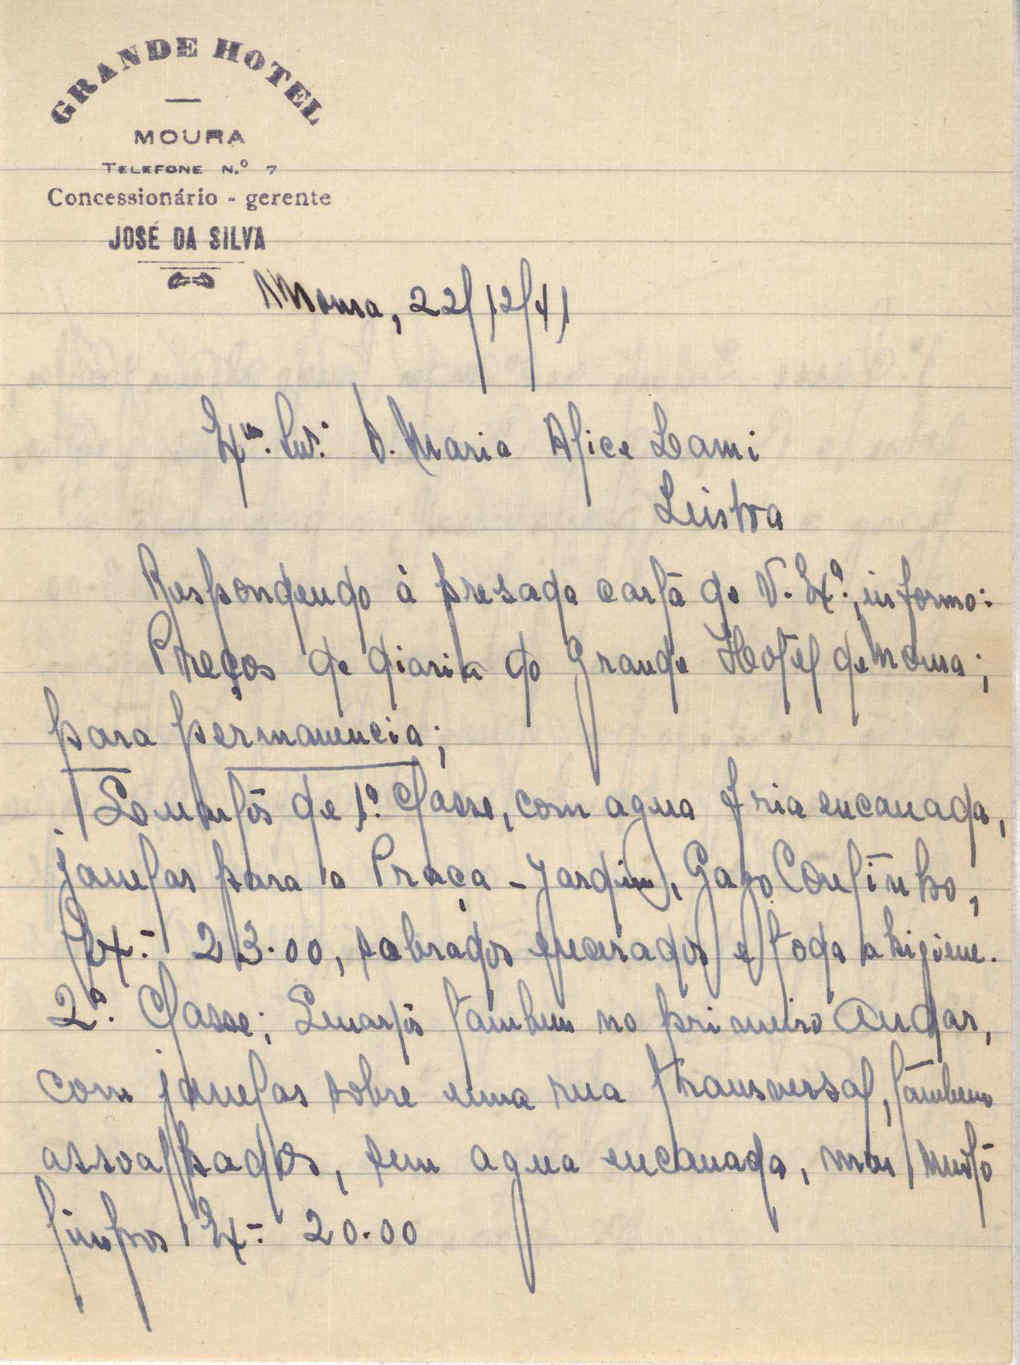 GRANDE HOTEL
MOURA
TELEFONE N.º 7
Concessionário - gerente
JOSÉ DA SILVA
Moura, 22/12/41
D. Maria Alice Lami
Respondendo à presada carta de V. Exª, informo:
Preços de diaria do Grande Hotel de Moura;
para permanencia;
Quartos de 1ª. Classe, com agua fria encanada,
janelas para a Praça - Jardim, Gago Coutinho,
23.00, sobrados encerados e toda a higiene.
2ª. Classe; Quartos tambem no primeiro Andar,
com janelas sobre uma rua transversal, tambem
assoalhados, sem agua encanada, mas muito
limpos 20.00